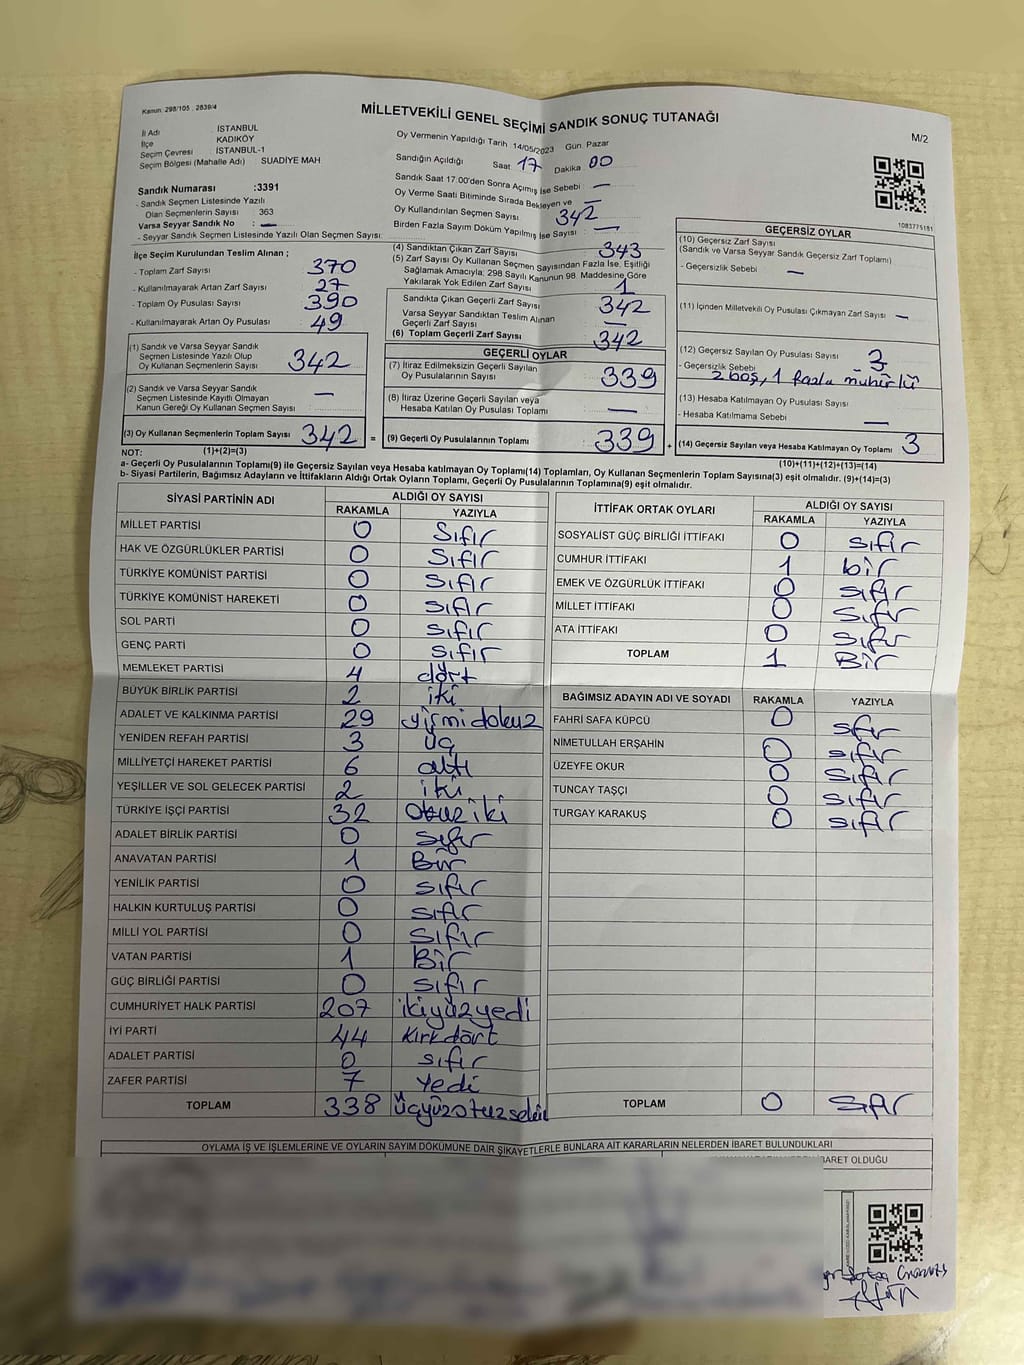 Kanun: 298/105 : 2839/4
MİLLETVEKİLİ GENEL SEÇİMİ SANDIK SONUÇ TUTANAĞI
M/2
İl Adı : İSTANBUL
İlçe : KADIKÖY
Seçim Çevresi : İSTANBUL-1
Seçim Bölgesi (Mahalle Adı) : SUADİYE MAH
Sandık Numarası :3391
- Sandık Seçmen Listesinde Yazılı
Olan Seçmenlerin Sayısı : 363
Varsa Seyyar Sandık No : —
- Seyyar Sandık Seçmen Listesinde Yazılı Olan Seçmen Sayısı:
Oy Vermenin Yapıldığı Tarih 14/05/2023 Gün. Pazar
Sandığın Açıldığı Saat 17 Dakika 00
Sandık Saat 17:00'den Sonra Açımış İse Sebebi —
Oy Verme Saati Bitiminde Sırada Bekleyen ve —
Oy Kullandırılan Seçmen Sayısı 342
Birden Fazla Sayım Döküm Yapılmış İse Sayısı —
1083775181
İlçe Seçim Kurulundan Teslim Alınan ;
- Toplam Zarf Sayısı 370
- Kullanılmayarak Artan Zarf Sayısı 27
- Toplam Oy Pusulası Sayısı 390
- Kullanılmayarak Artan Oy Pusulası 49
(1) Sandık ve Varsa Seyyar Sandık
Seçmen Listesinde Yazılı Olup
Oy Kullanan Seçmenlerin Sayısı 342
(2) Sandık ve Varsa Seyyar Sandık
Seçmen Listesinde Kayıtlı Olmayan
Kanun Gereği Oy Kullanan Seçmen Sayısı —
(3) Oy Kullanan Seçmenlerin Toplam Sayısı 342 =
(4) Sandıktan Çıkan Zarf Sayısı 343
(5) Zarf Sayısı Oy Kullanan Seçmen Sayısından Fazla İse, Eşitliği
Sağlamak Amacıyla; 298 Sayılı Kanunun 98. Maddesine Göre
Yakılarak Yok Edilen Zarf Sayısı 1
Sandıkta Çıkan Geçerli Zarf Sayısı 342
Varsa Seyyar Sandıktan Teslim Alınan
Geçerli Zarf Sayısı —
(6) Toplam Geçerli Zarf Sayısı 342
GEÇERLİ OYLAR
(7) İtiraz Edilmeksizin Geçerli Sayılan
Oy Pusulalarının Sayısı 339
(8) İtiraz Üzerine Geçerli Sayılan veya
Hesaba Katılan Oy Pusulası Toplamı —
(9) Geçerli Oy Pusulalarının Toplamı 339 +
GEÇERSİZ OYLAR
(10) Geçersiz Zarf Sayısı
(Sandık ve Varsa Seyyar Sandık Geçersiz Zarf Toplamı)
- Geçersizlik Sebebi —
(11) İçinden Milletvekili Oy Pusulası Çıkmayan Zarf Sayısı —
(12) Geçersiz Sayılan Oy Pusulası Sayısı 3
- Geçersizlik Sebebi
2 boş, 1 fazla mühürlü
(13) Hesaba Katılmayan Oy Pusulası Sayısı
- Hesaba Katılmama Sebebi —
(14) Geçersiz Sayılan veya Hesaba Katılmayan Oy Toplamı 3
NOT: (1)+(2)=(3)
(10)+(11)+(12)+(13)=(14)
a- Geçerli Oy Pusulalarının Toplamı(9) ile Geçersiz Sayılan veya Hesaba katılmayan Oy Toplamı(14) Toplamları, Oy Kullanan Seçmenlerin Toplam Sayısına(3) eşit olmalıdır. (9)+(14)=(3)
b- Siyasi Partilerin, Bağımsız Adayların ve İttifakların Aldığı Ortak Oyların Toplamı, Geçerli Oy Pusulalarının Toplamına(9) eşit olmalıdır.
SİYASİ PARTİNİN ADI ALDIĞI OY SAYISI
RAKAMLA YAZIYLA
MİLLET PARTİSİ 0 Sıfır
HAK VE ÖZGÜRLÜKLER PARTİSİ 0 Sıfır
TÜRKİYE KOMÜNİST PARTİSİ 0 Sıfır
TÜRKİYE KOMÜNİST HAREKETİ 0 sıfır
SOL PARTİ 0 sıfır
GENÇ PARTİ 0 sıfır
MEMLEKET PARTİSİ 4 dört
BÜYÜK BİRLİK PARTİSİ 2 iki
ADALET VE KALKINMA PARTİSİ 29 yirmi dokuz
YENİDEN REFAH PARTİSİ 3 üç
MİLLİYETÇİ HAREKET PARTİSİ 6 altı
YEŞİLLER VE SOL GELECEK PARTİSİ 2 iki
TÜRKİYE İŞÇİ PARTİSİ 32 otuz iki
ADALET BİRLİK PARTİSİ 0 sıfır
ANAVATAN PARTİSİ 1 Bir
YENİLİK PARTİSİ 0 sıfır
HALKIN KURTULUŞ PARTİSİ 0 sıfır
MİLLİ YOL PARTİSİ 0 sıfır
VATAN PARTİSİ 1 Bir
GÜÇ BİRLİĞİ PARTİSİ 0 sıfır
CUMHURİYET HALK PARTİSİ 207 ikiyüzyedi
İYİ PARTİ 44 Kırkdört
ADALET PARTİSİ 0 sıfır
ZAFER PARTİSİ 7 Yedi
TOPLAM 338 üçyüzotuzsekiz
İTTİFAK ORTAK OYLARI ALDIĞI OY SAYISI
RAKAMLA YAZIYLA
SOSYALİST GÜÇ BİRLİĞİ İTTİFAKI 0 sıfır
CUMHUR İTTİFAKI 1 bir
EMEK VE ÖZGÜRLÜK İTTİFAKI 0 sıfır
MİLLET İTTİFAKI 0 sıfır
ATA İTTİFAKI 0 sıfır
TOPLAM 1 Bir
BAĞIMSIZ ADAYIN ADI VE SOYADI RAKAMLA YAZIYLA
FAHRİ SAFA KÜPCÜ 0 sıfır
NİMETULLAH ERŞAHİN 0 sıfır
ÜZEYFE OKUR 0 sıfır
TUNCAY TAŞÇI 0 sıfır
TURGAY KARAKUŞ 0 sıfır
TOPLAM 0 sıfır
OYLAMA İŞ VE İŞLEMLERİNE VE OYLARIN SAYIM DÖKÜMÜNE DAİR ŞİKAYETLERLE BUNLARA AİT KARARLARIN NELERDEN İBARET BULUNDUKLARI
BARET OLDUĞU